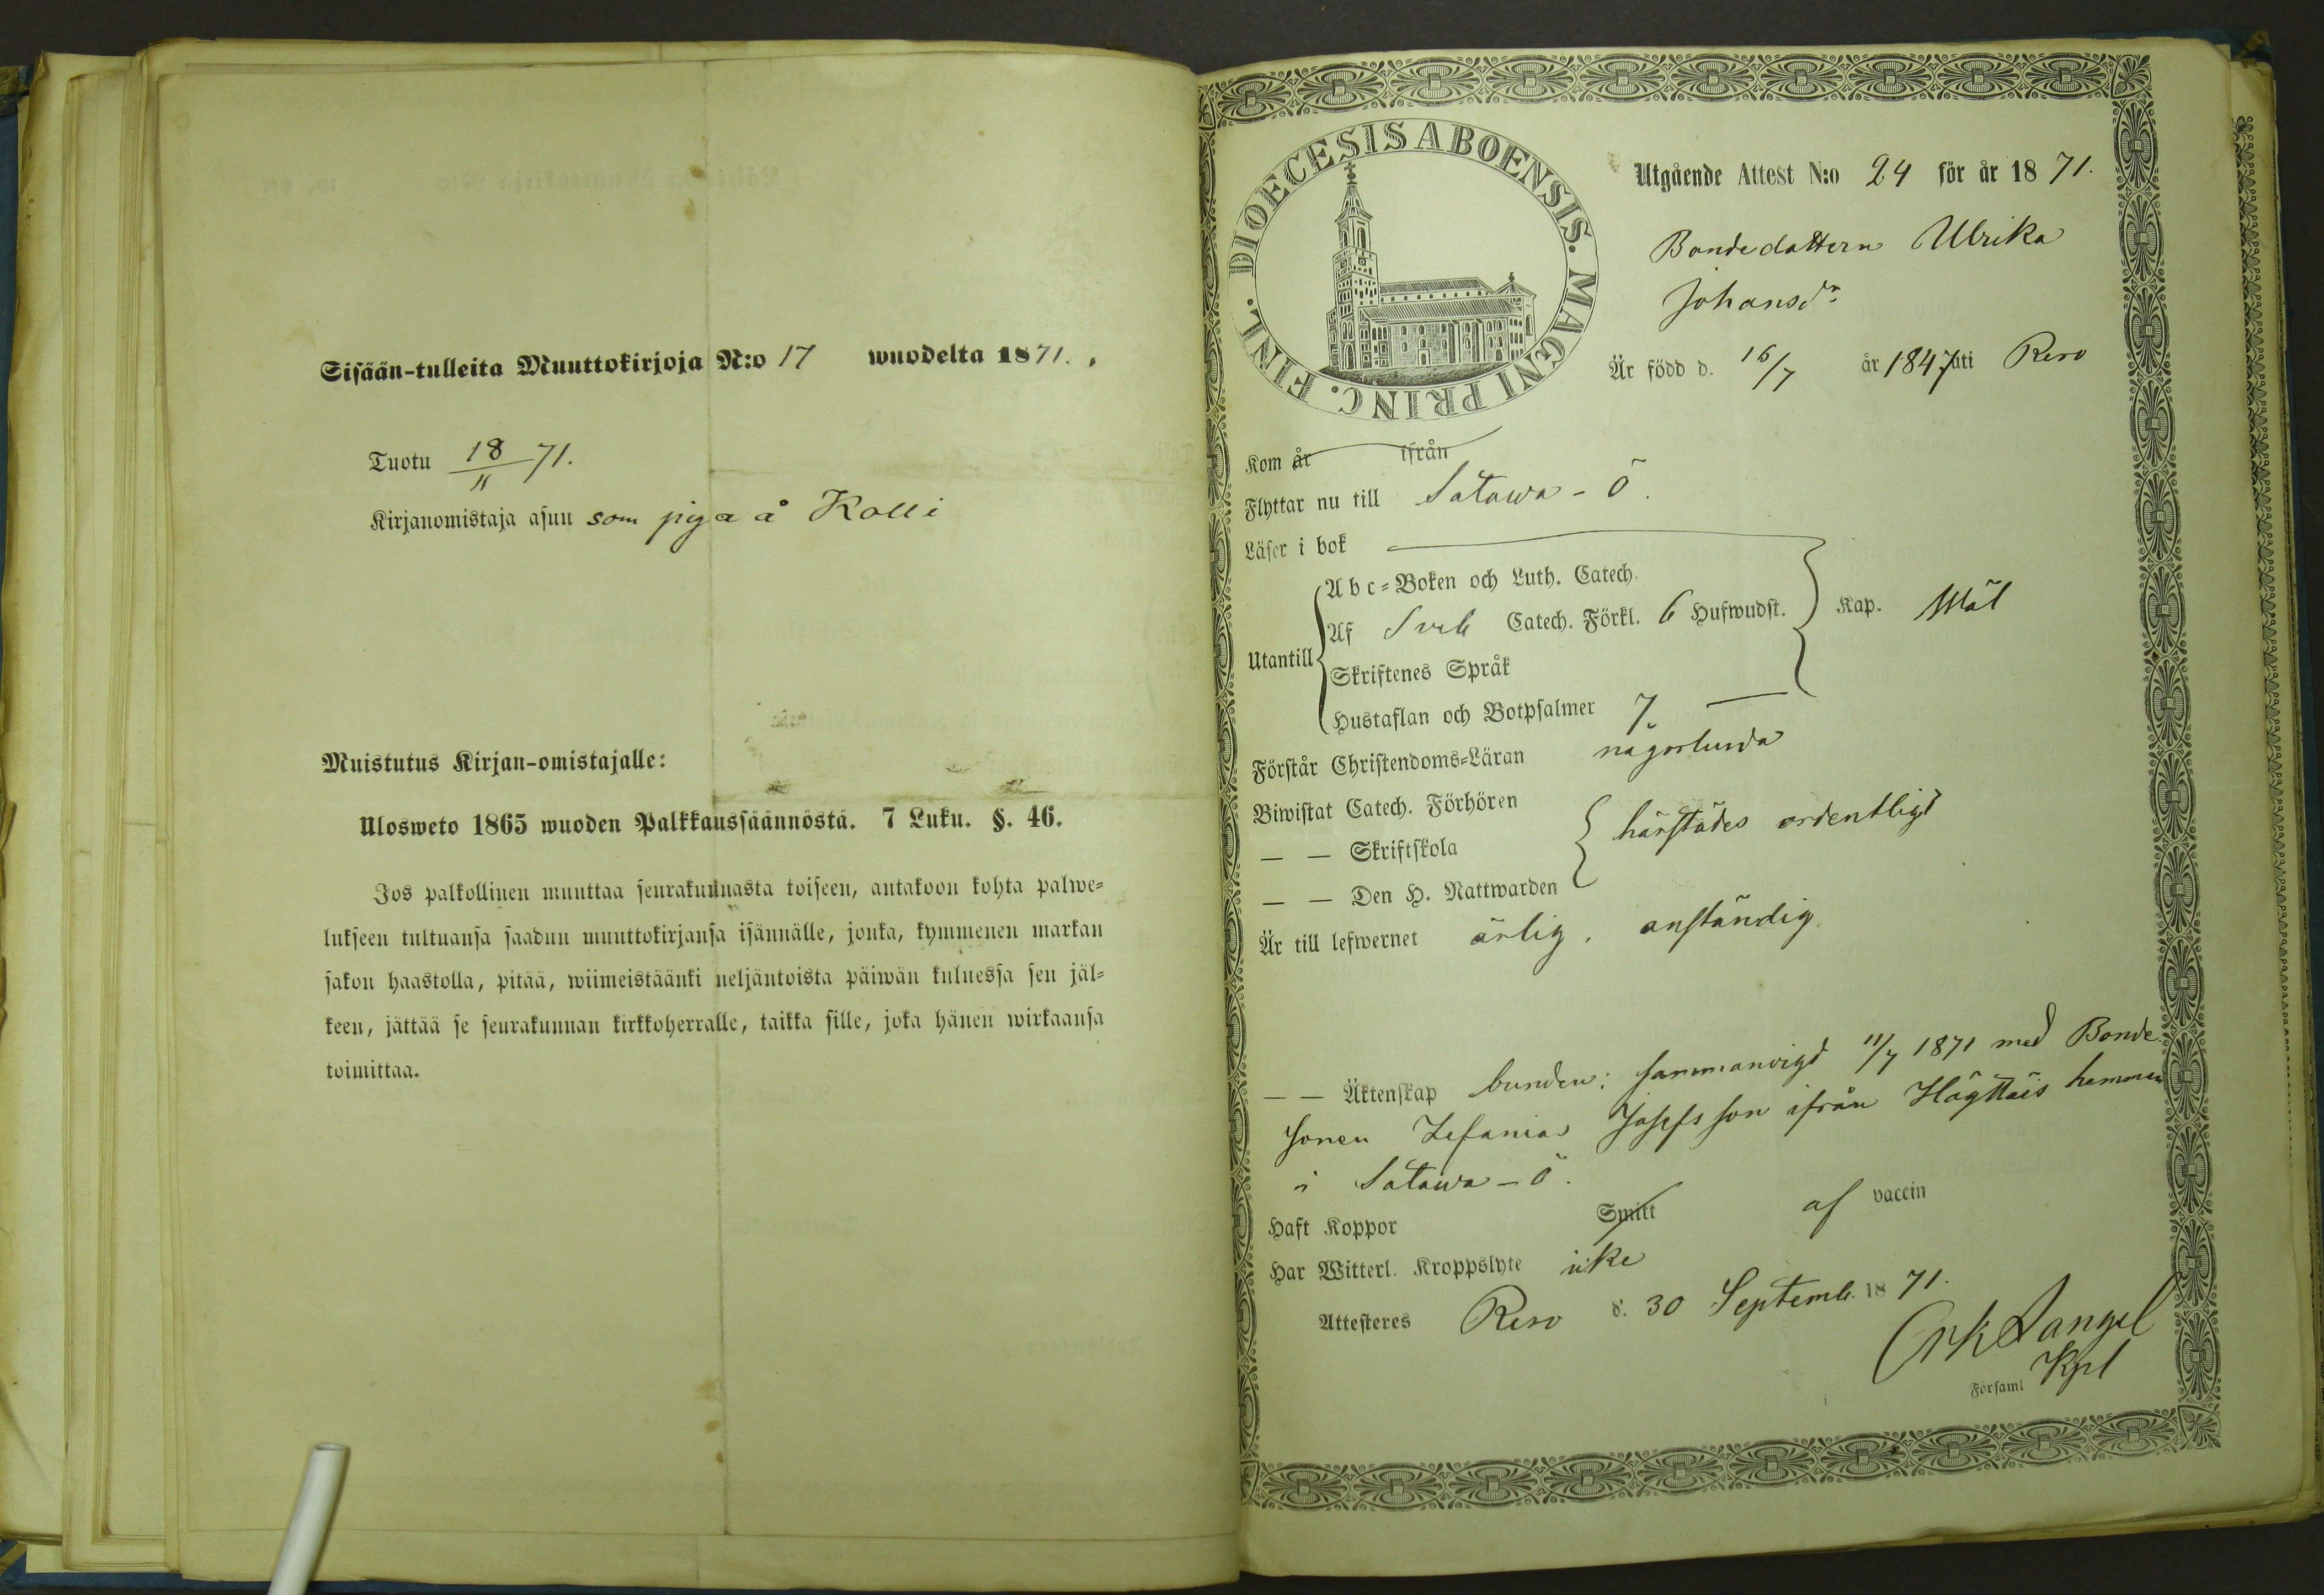 Sisään-tulleita Muuttokirjoja N:o 17 wuodelta 1871.
Tuotu 18/11 71.
Kirjanomistaja asuu som piga å Kolli
Muistutus Kirjan-omistajalle:
Ulosweto 1865 wuoden Palkkaussäännöstä. 7 Luku. §. 46.
Jos palkollinen muuttaa seurakunnasta toiseen, antakoon kohta palwe=
lukseen tultuansa saadun muuttokirjansa isännälle, jonka, kymmenen markan
sakon haastolla, pitää, wiimeistäänki neljäntoista päiwän kuluessa sen jäl=
keen, jättää se seurakunnan kirkkoherralle, taikka sille, joka hänen wirkaansa
toimittaa.
DIOECESIS ABOENSIS. MAGNI PRINC. FINL.
Utgående Attest N:o 24 för år 1871.
Bondedottern Ulrika
Johansdr
Är född d. 16/7 år 1847 uti Reso
Kom år ifrån
Flyttar nu till Satawa-Ö.
Läser i bok
Abc=Boken och Luth. Catech.
Utantill Af Sveb Catech. Förkl. 6 Hufwudst. Kap. Wäl
Skriftenes Språk
Hustaflan och Botpsalmer 7
Förstår Christendoms=Läran någorlunda
Biwistat Catech. Förhören
— — Skriftskola härstädes ordentligt
— — Den H. Nattwarden
Är till lefwernet ärlig, anständig
— — Äktenskap bunden: sammanvigd 11/7 1871 med Bonde
sonen Zefanias Josefsson ifrån hemman
i Satawa-Ö.
Haft Koppor Smitt af vaccin
Har Witterl. Kroppslyte icke
Attesteres Reso d. 30 Septemb. 1871.
Kpl
Församl